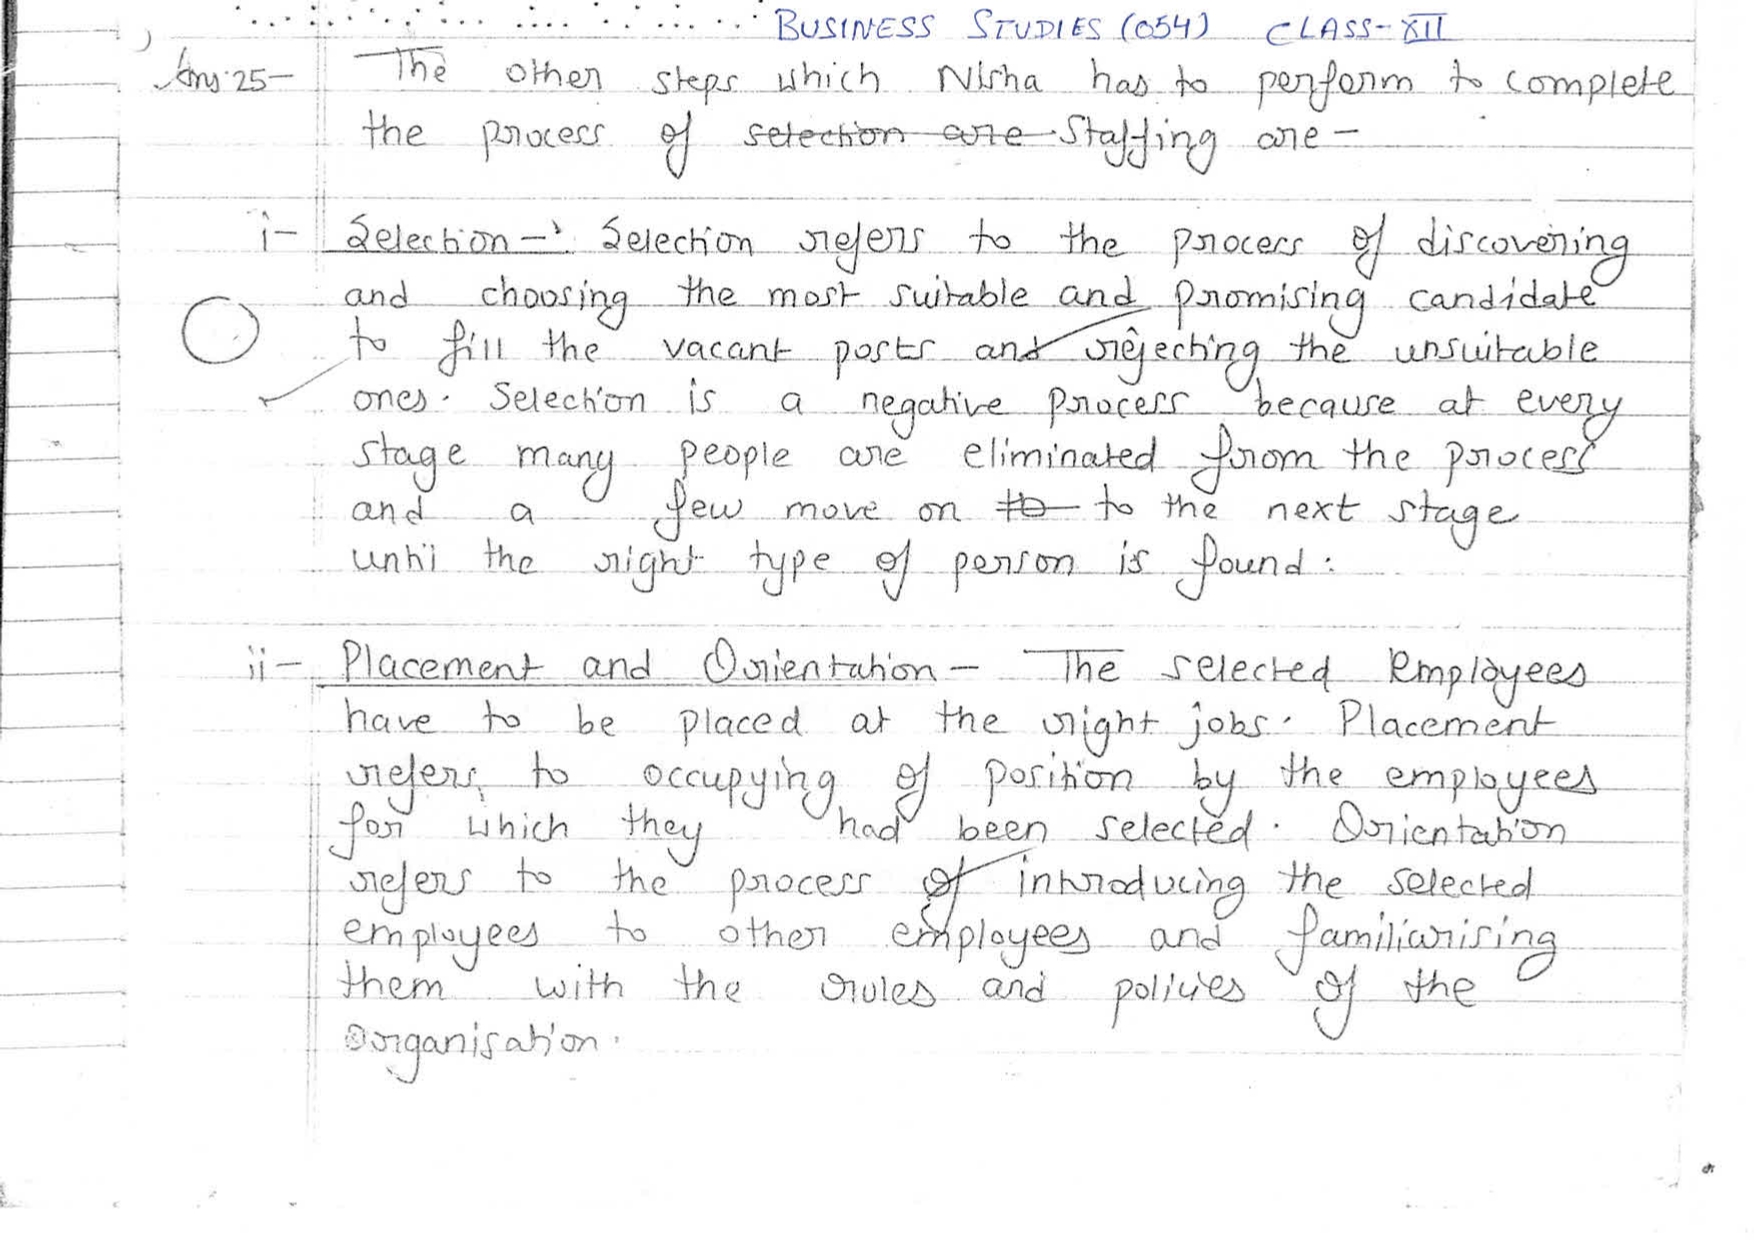 BUSINESS STUDIES (054) CLASS-XII
Ans. 25- The other steps which Nisha has to perform to complete
the process of selection are Staffing are -
i- Selection - Selection refers to the process of discovering
and choosing the most suitable and promising candidate
to fill the vacant posts and rejecting the unsuitable
ones. Selection is a negative process because at every
stage many people are eliminated from the process
and a few move on to to the next stage
until the right type of person is found.
ii- Placement and Orientation - The selected employees
have to be placed at the right jobs. Placement
refers to occupying of position by the employees
for which they had been selected. Orientation
refers to the process of introducing the selected
employees to other employees and familiarising
them with the rules and policies of the
organisation.